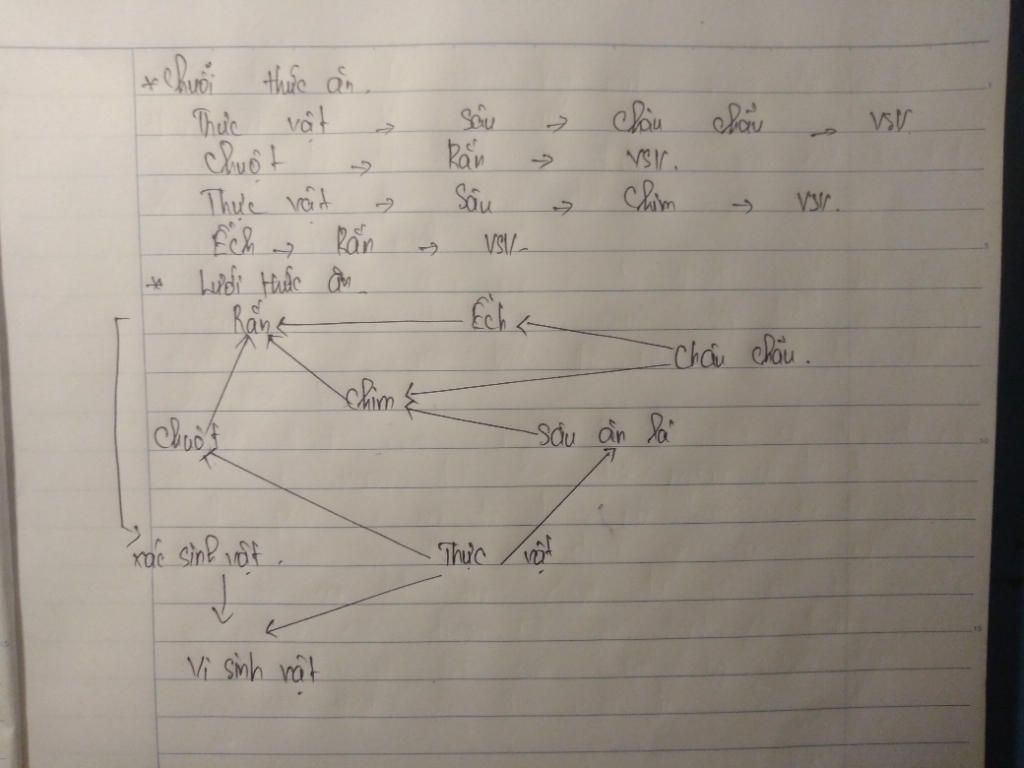 * Chuỗi thức ăn.
Thực vật → Sâu → Châu chấu → VSV
Chuột → Rắn → VSV.
Thực vật → Sâu → Chim → VSV.
Ếch → Rắn → VSV.
* Lưới thức ăn
Rắn Ếch
Châu chấu.
Chim
Chuột Sâu ăn lá
Xác sinh vật. Thực vật
Vi sinh vật